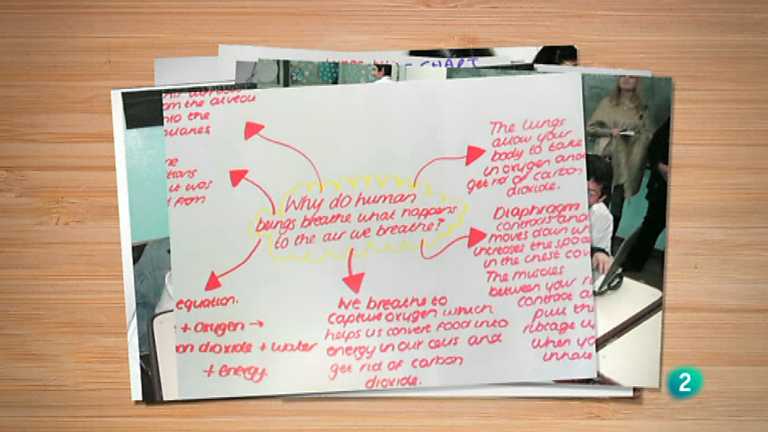 CHART
from the alveoli
into the
Why do human
beings breathe what happens
to the air we breathe?
The lungs
allow your
body to take
in oxygen and
get rid of carbon
dioxide.
Diaphragm
contracts and
moves down
increases the
in the chest
The muscles
between your
contract
pull
ribcage
when
inhale
it was
from
equation.
+ oxygen →
dioxide + water
+ energy.
We breathe to
capture oxygen which
helps us convert food into
energy in our cells and
get rid of carbon
dioxide.
2